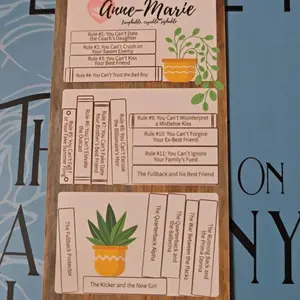 Anne-Marie
Rule #1: You Can't Date
the Coach's Daughter
Rule #2: You Can't Crush on
Your Sworn Enemy
Rule #3: You Can't Kiss
Your Best Friend
Rule #4: You Can't Trust the Bad Boy
Rule #5: You Can't Fall
for Your Fake Boyfriend
the Outcast
Rule #7: You Can't Fake Date
Rule #8: You Can't Excuse
the Billionaire's Heir
Rule #9: You Can't Misinterpret
a Mistletoe Kiss
Rule #10: You Can't Forgive
Your Ex-Best Friend
Rule #12: You Can't Ignore
Your Family's Feud
The Fullback and his Best Friend
The Fullback Protector
The Quarterback Alpha
The Quarterback and
the Ballerina
The War Between the Packs
The Running Back and
the Prima Donna
The Kicker and the New Girl
THE
ON
NY